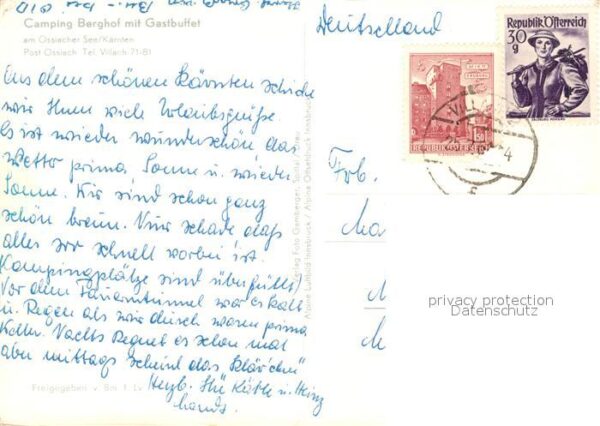 Camping Berghof mit Gastbuffet
am Ossiacher See/Kärnten
Post Ossiach Tel. Villach 71 81
Aus dem schönen Kärnten schicke
wir Ihnen viele Urlaubsgrüße.
Es ist wieder wunderschön das
Wetter prima, Sonne u. wieder
Sonne. Wir sind schon ganz
schön braun. Nur schade daß
alles so schnell vorbei ist.
Kampingplätze sind überfüllt.
Vor dem Tauerntunnel war es kalt
u. Regen als wir durch waren prima
Nachts Regnet es schon mal
aber mittags scheint das
Herzl. Ihr Käthe u. Heinz
Freigegeben v. Bm f. Lv
Deutschland
REPUBLIK ÖSTERREICH
1.50
Republik Österreich
30
g
VILLACH
Frb.
privacy protection
Datenschutz